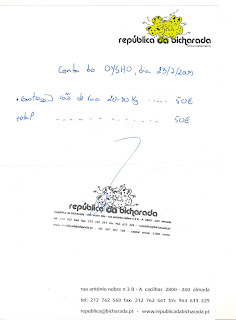 república da bicharada
Conta do OYSHO, dia 23/7/2009
cão de rua 20-30 Kg ..... 50€
total ........... 50€
república da bicharada
rua antónio nobre n 3 B - A cacilhas 2800 - 260 almada
tel: 212 762 560 fax: 212 762 561 tm: 964 613 229
republica@bicharada.pt - www.republicadabicharada.pt